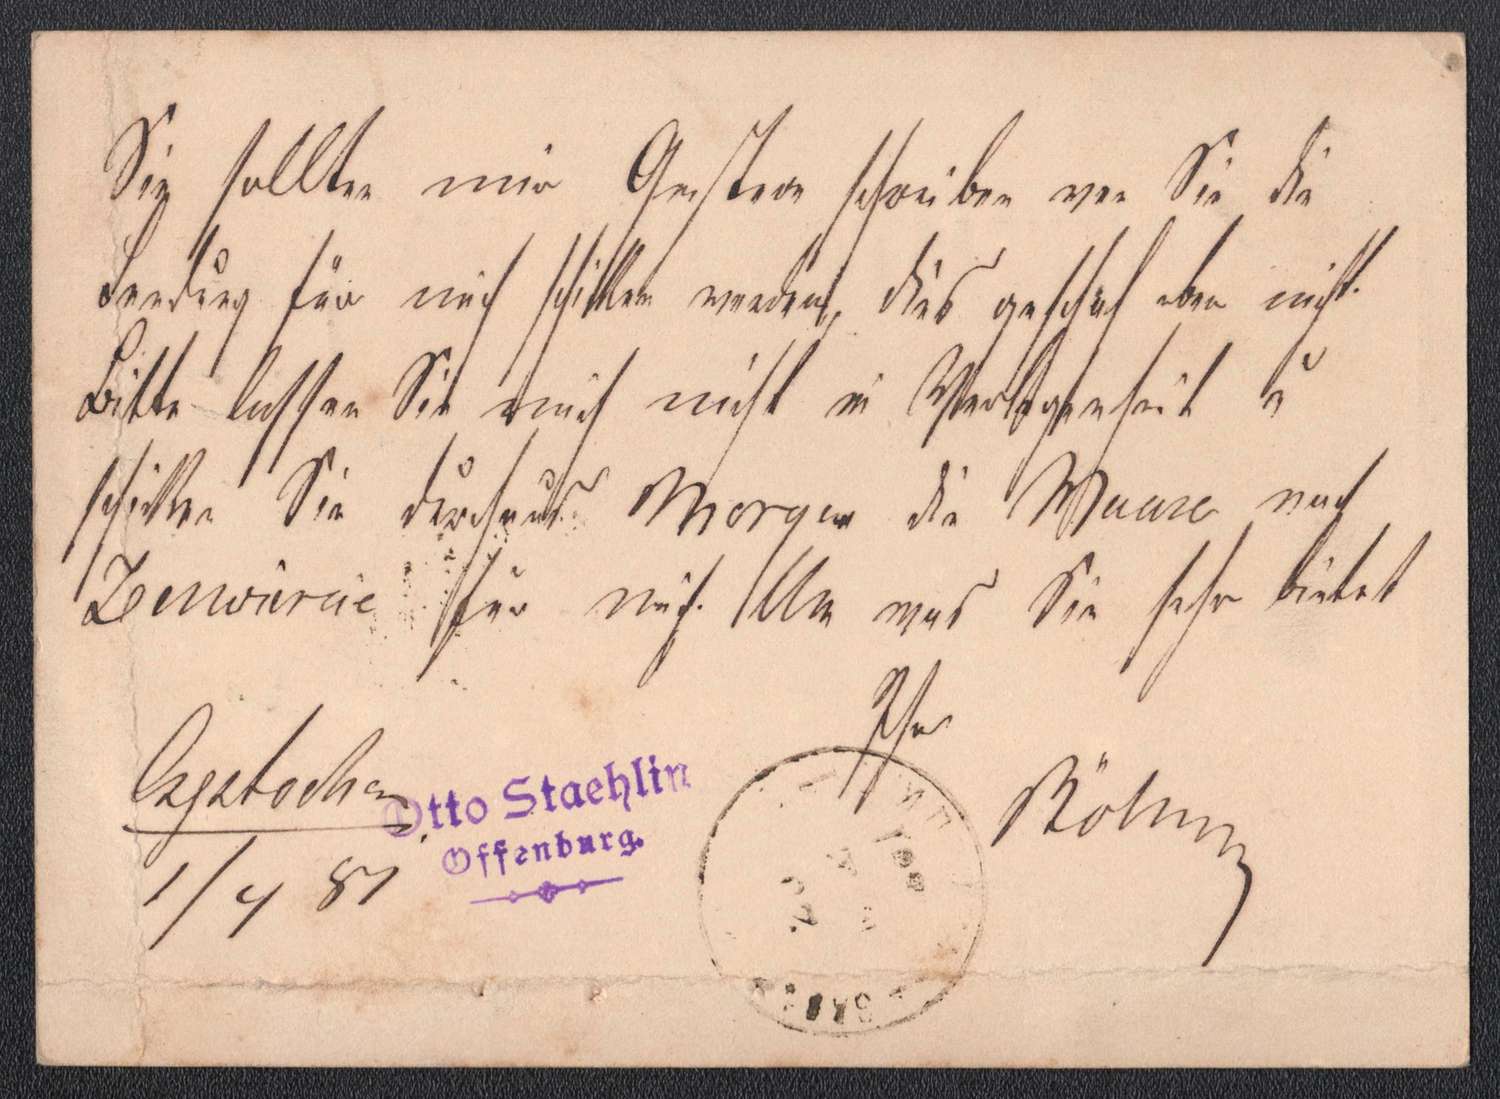 Sie sollten mir Gestern schreiben wen Sie die
Sendung für mich schicken werden, dies geschah aber nicht.
Bitte lassen Sie mich nicht in Verlegenheit u
schicken Sie durchaus Morgen die Waare nach
für mich. Um was Sie sehr bietet
Ihr
Böhm
1/4 87
Otto Staehlin
Offenburg.